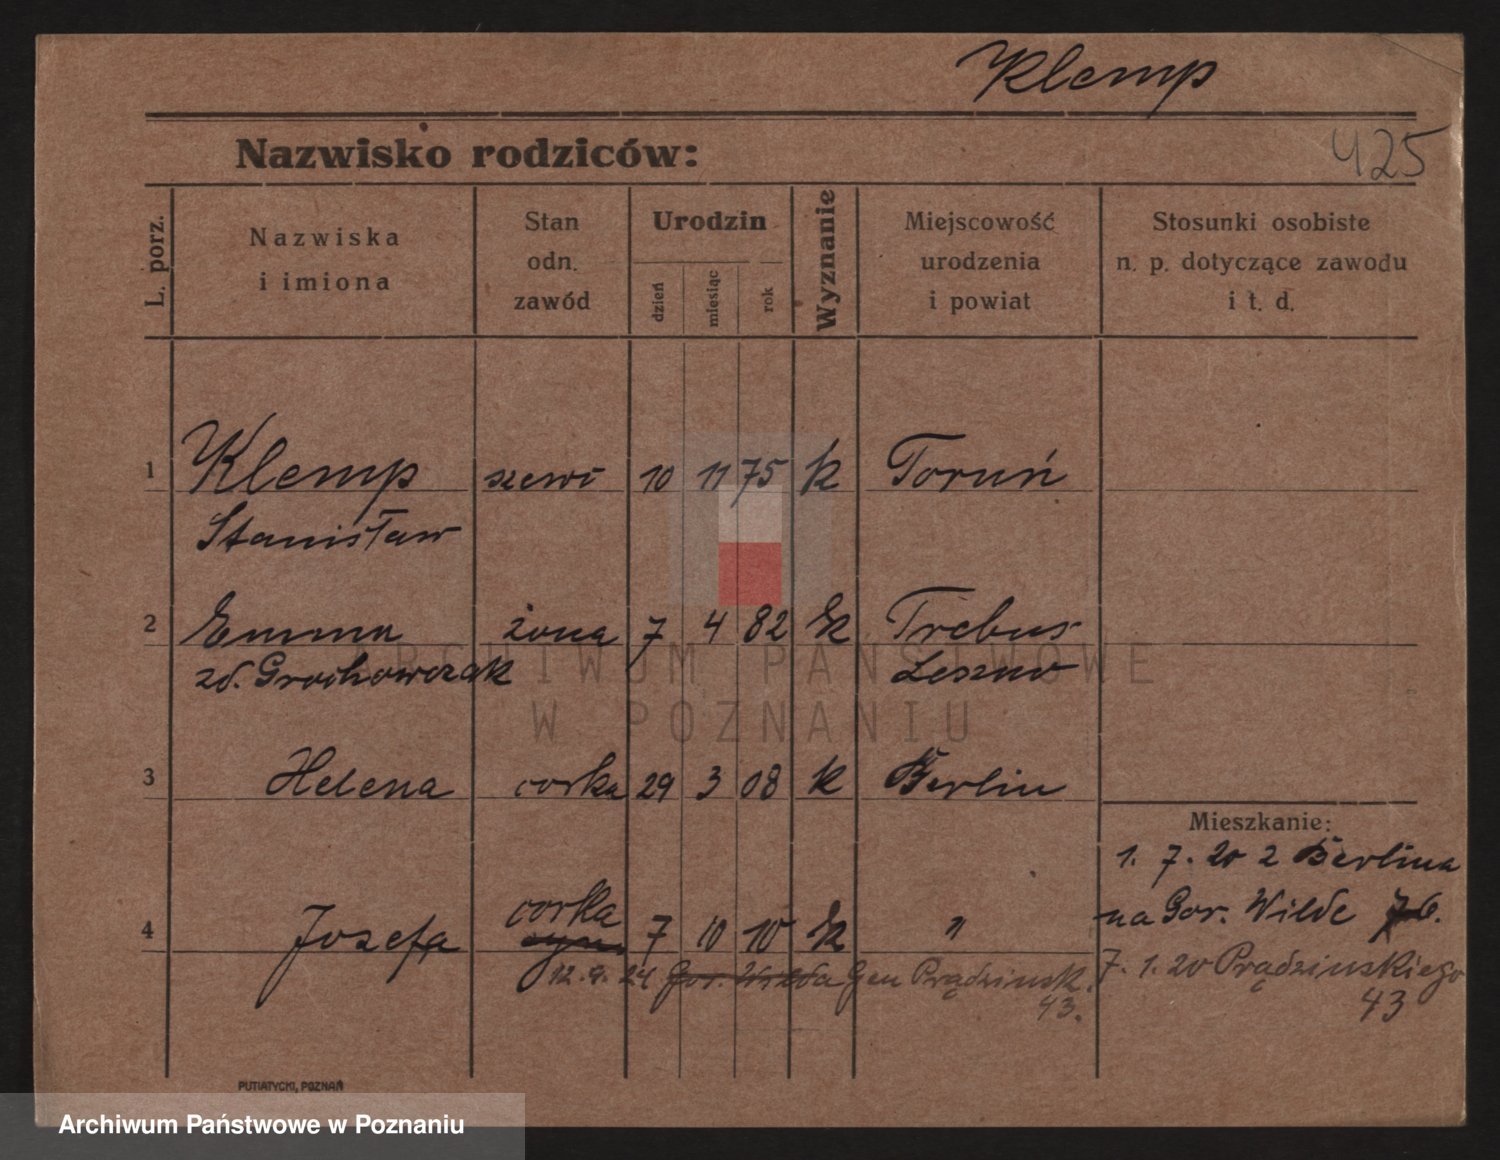 Klemp
Nazwisko rodziców:
425
L. porz.
Nazwiska
i imiona
Stan
odn.
zawód
Urodzin
dzień
miesiąc
rok
Wyznanie
Miejscowość
urodzenia
i powiat
Stosunki osobiste
n. p. dotyczące zawodu
i t. d.
1 Klemp szewc 10 11 75 k Toruń
Stanisław
2 Emma żona 7 4 82 k Trebus
zd. Grochowczak Leszno
3 Helena corka 29 3 08 k Berlin
Mieszkanie:
1. 7. 20 z Berlina
corka
na Gor. Wilde 76.
4 Josefa syn 7 10 10 k "
12. 9. 24 Gor. Wilda Gen Prądzinsk. 43.
7. 1. 20 Prądzinskiego
43
PUTIATYCKI, POZNAŃ
ARCHIWUM PAŃSTWOWE
W POZNANIU
Archiwum Państwowe w Poznaniu